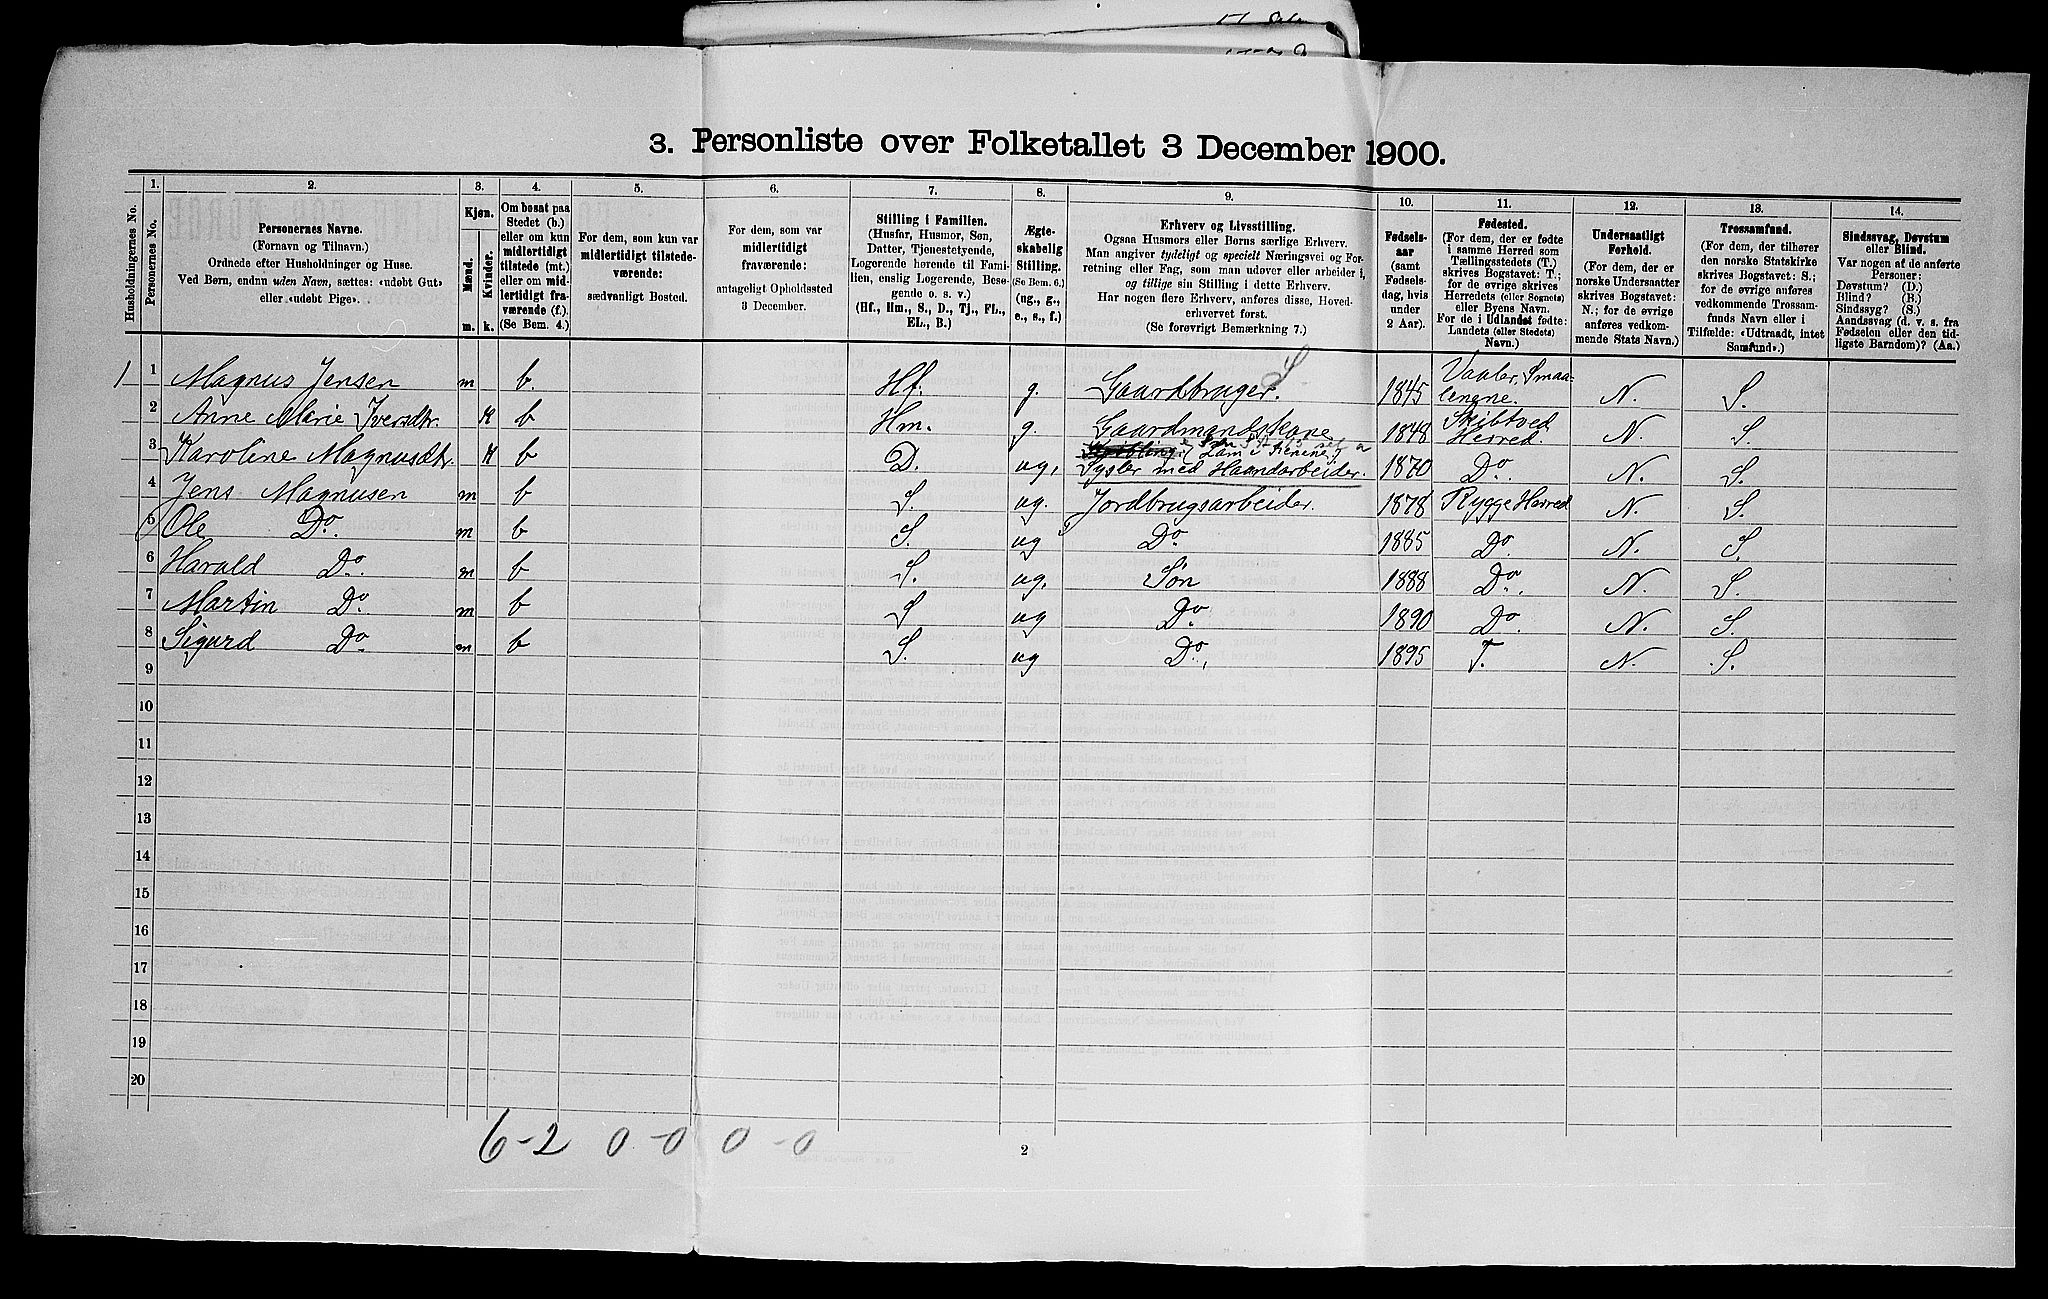 3. Personliste over Folketallet 3 December 1900.
Husholdningernes No.
1.
Personernes No.
2.
Personernes Navne.
(Fornavn og Tilnavn.)
Ordnede efter Husholdninger og Huse.
Ved Børn, endnu uden Navn, sættes: «udøbt Gut»
eller «udøbt Pige».
3.
Kjøn.
Mænd.
Kvinder.
m.
k.
4.
Om bosat paa
Stedet (b.)
eller om kun
midlertidigt
tilstede (mt.)
eller om mid-
lertidigt fra-
værende (f.).
(Se Bem. 4.)
5.
For dem, som kun var
midlertidigt tilstede-
værende:
sædvanligt Bosted.
6.
For dem, som var
midlertidigt
fraværende:
antageligt Opholdssted
3 December.
7.
Stilling i Familien.
(Husfar, Husmor, Søn,
Datter, Tjenestetyende,
Logerende hørende til Fami-
lien, enslig Logerende, Besø-
gende o. s. v.)
(Hf., Hm., S., D., Tj., FL.,
EL., B.)
8.
Ægte-
skabelig
Stilling.
(Se Bem. 6.)
(ug., g.,
e., s., f.)
9.
Erhverv og Livsstilling.
Ogsaa Husmors eller Børns særlige Erhverv.
Man angiver tydeligt og specielt Næringsvei og For-
retning eller Fag, som man udøver eller arbeider i,
og tillige sin Stilling i dette Erhverv.
Har nogen flere Erhverv, anføres disse, Hoved-
erhvervet først.
(Se forøvrigt Bemærkning 7.)
10.
Fødsels-
aar
(samt
Fødsels-
dag, hvis
under
2 Aar).
11.
Fødested.
(For dem, der er fødte
i samme Herred som
Tællingsstedets (T.)
skrives Bogstavet: T.;
for de øvrige skrives
Herredets (eller Sognets)
eller Byens Navn.
For de i Udlandet fødte:
Landets (eller Stedets)
Navn.)
12.
Undersaatligt
Forhold.
(For dem, der er
norske Undersaatter
skrives Bogstavet:
N.; for de øvrige
anføres vedkom-
mende Stats Navn.)
13.
Trossamfund.
(For dem, der tilhører
den norske Statskirke
skrives Bogstavet: S.;
for de øvrige anføres
vedkommende Trossam-
funds Navn eller i
Tilfælde: «Udtraadt, intet
Samfund».)
14.
Sindssvag, Døvstum
eller Blind.
Var nogen af de anførte
Personer:
Døvstum? (D.)
Blind? (B.)
Sindssyg? (S.)
Aandssvag (d. v. s. fra
Fødselen eller den tid-
ligste Barndom)? (Aa.)
1 1 Magnus Jensen m b. Hf. g. Gaardbruger. S 1845 Vaaler, Smaa-
lenene. N. S.
2 Anne Marie Iversdtr. K b Hm. g. Gaardmandskone 1848 Skibtved
Herred. N. S.
3 Karoline Magnusdtr. K b D. ug, Sysler med Haandarbeider. 1870 Do. N. S.
4 Jens Magnusen m b S. ug. Jordbrugsarbeider. 1878 Rygge Herred N. S.
5 Ole Do. m b S. ug Do 1885 Do. N. S.
6 Harald Do. m b S. ug. Søn 1888 Do. N. S.
7 Martin Do. m b S ug Do. 1890 Do. N. S.
8 Sigurd Do m b S. ug Do. 1895 T. N. S.
9
10
11
12
13
14
15
16
17
18
19
20
6-2 0-0 0-0
2